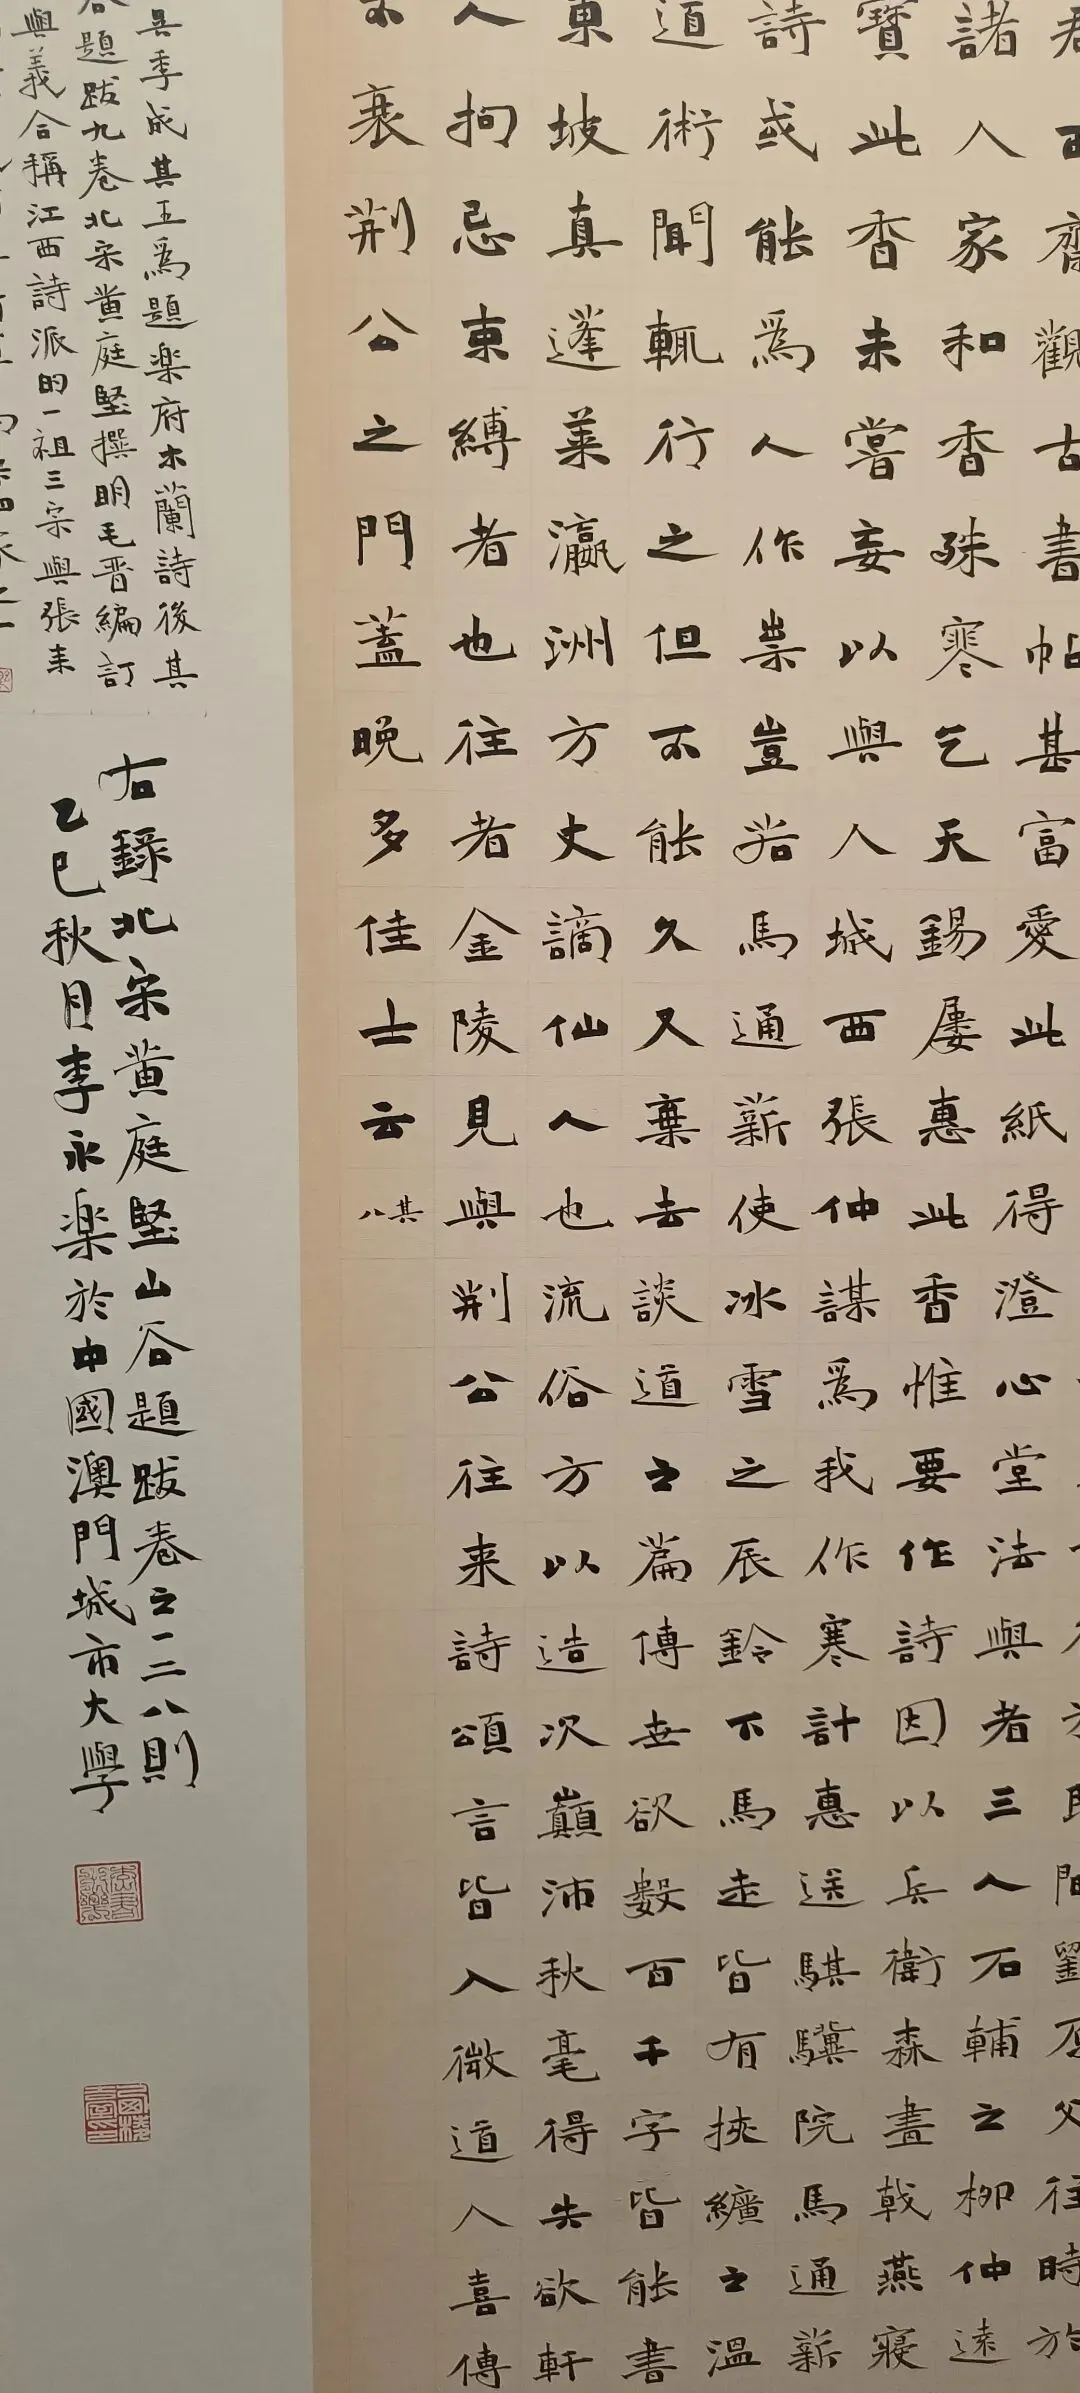 君
齋觀古書帖甚富愛此紙得澄心堂法與者三人石輔之柳仲遠
諸人家和香殊寒乞天錫屢惠此香惟要作詩因以兵衛森畫戟燕寢
寶此香未嘗妄以與人城西張仲謀為我作寒計惠送騏驥院馬通薪
詩或能為人作祟豈若馬通薪使冰雪之辰鈴下馬走皆有挾纊之溫
道術聞輒行之但不能久又棄去談道之篇傳世欲數百千字皆能書
東坡真蓬萊瀛洲方丈謫仙人也流俗方以造次顛沛秋毫得失欲軒
人拘忌束縛者也往者金陵見與荊公往來詩頌言皆入微道人喜傳
不衰荊公之門蓋晚多佳士云其八
其季成其五為題樂府木蘭詩後其
題跋九卷北宋黃庭堅撰明毛晉編訂
與義合稱江西詩派的一祖三宗與張耒
右錄北宋黃庭堅山谷題跋卷之一二八則
乙巳秋月李永樂於中國澳門城市大學